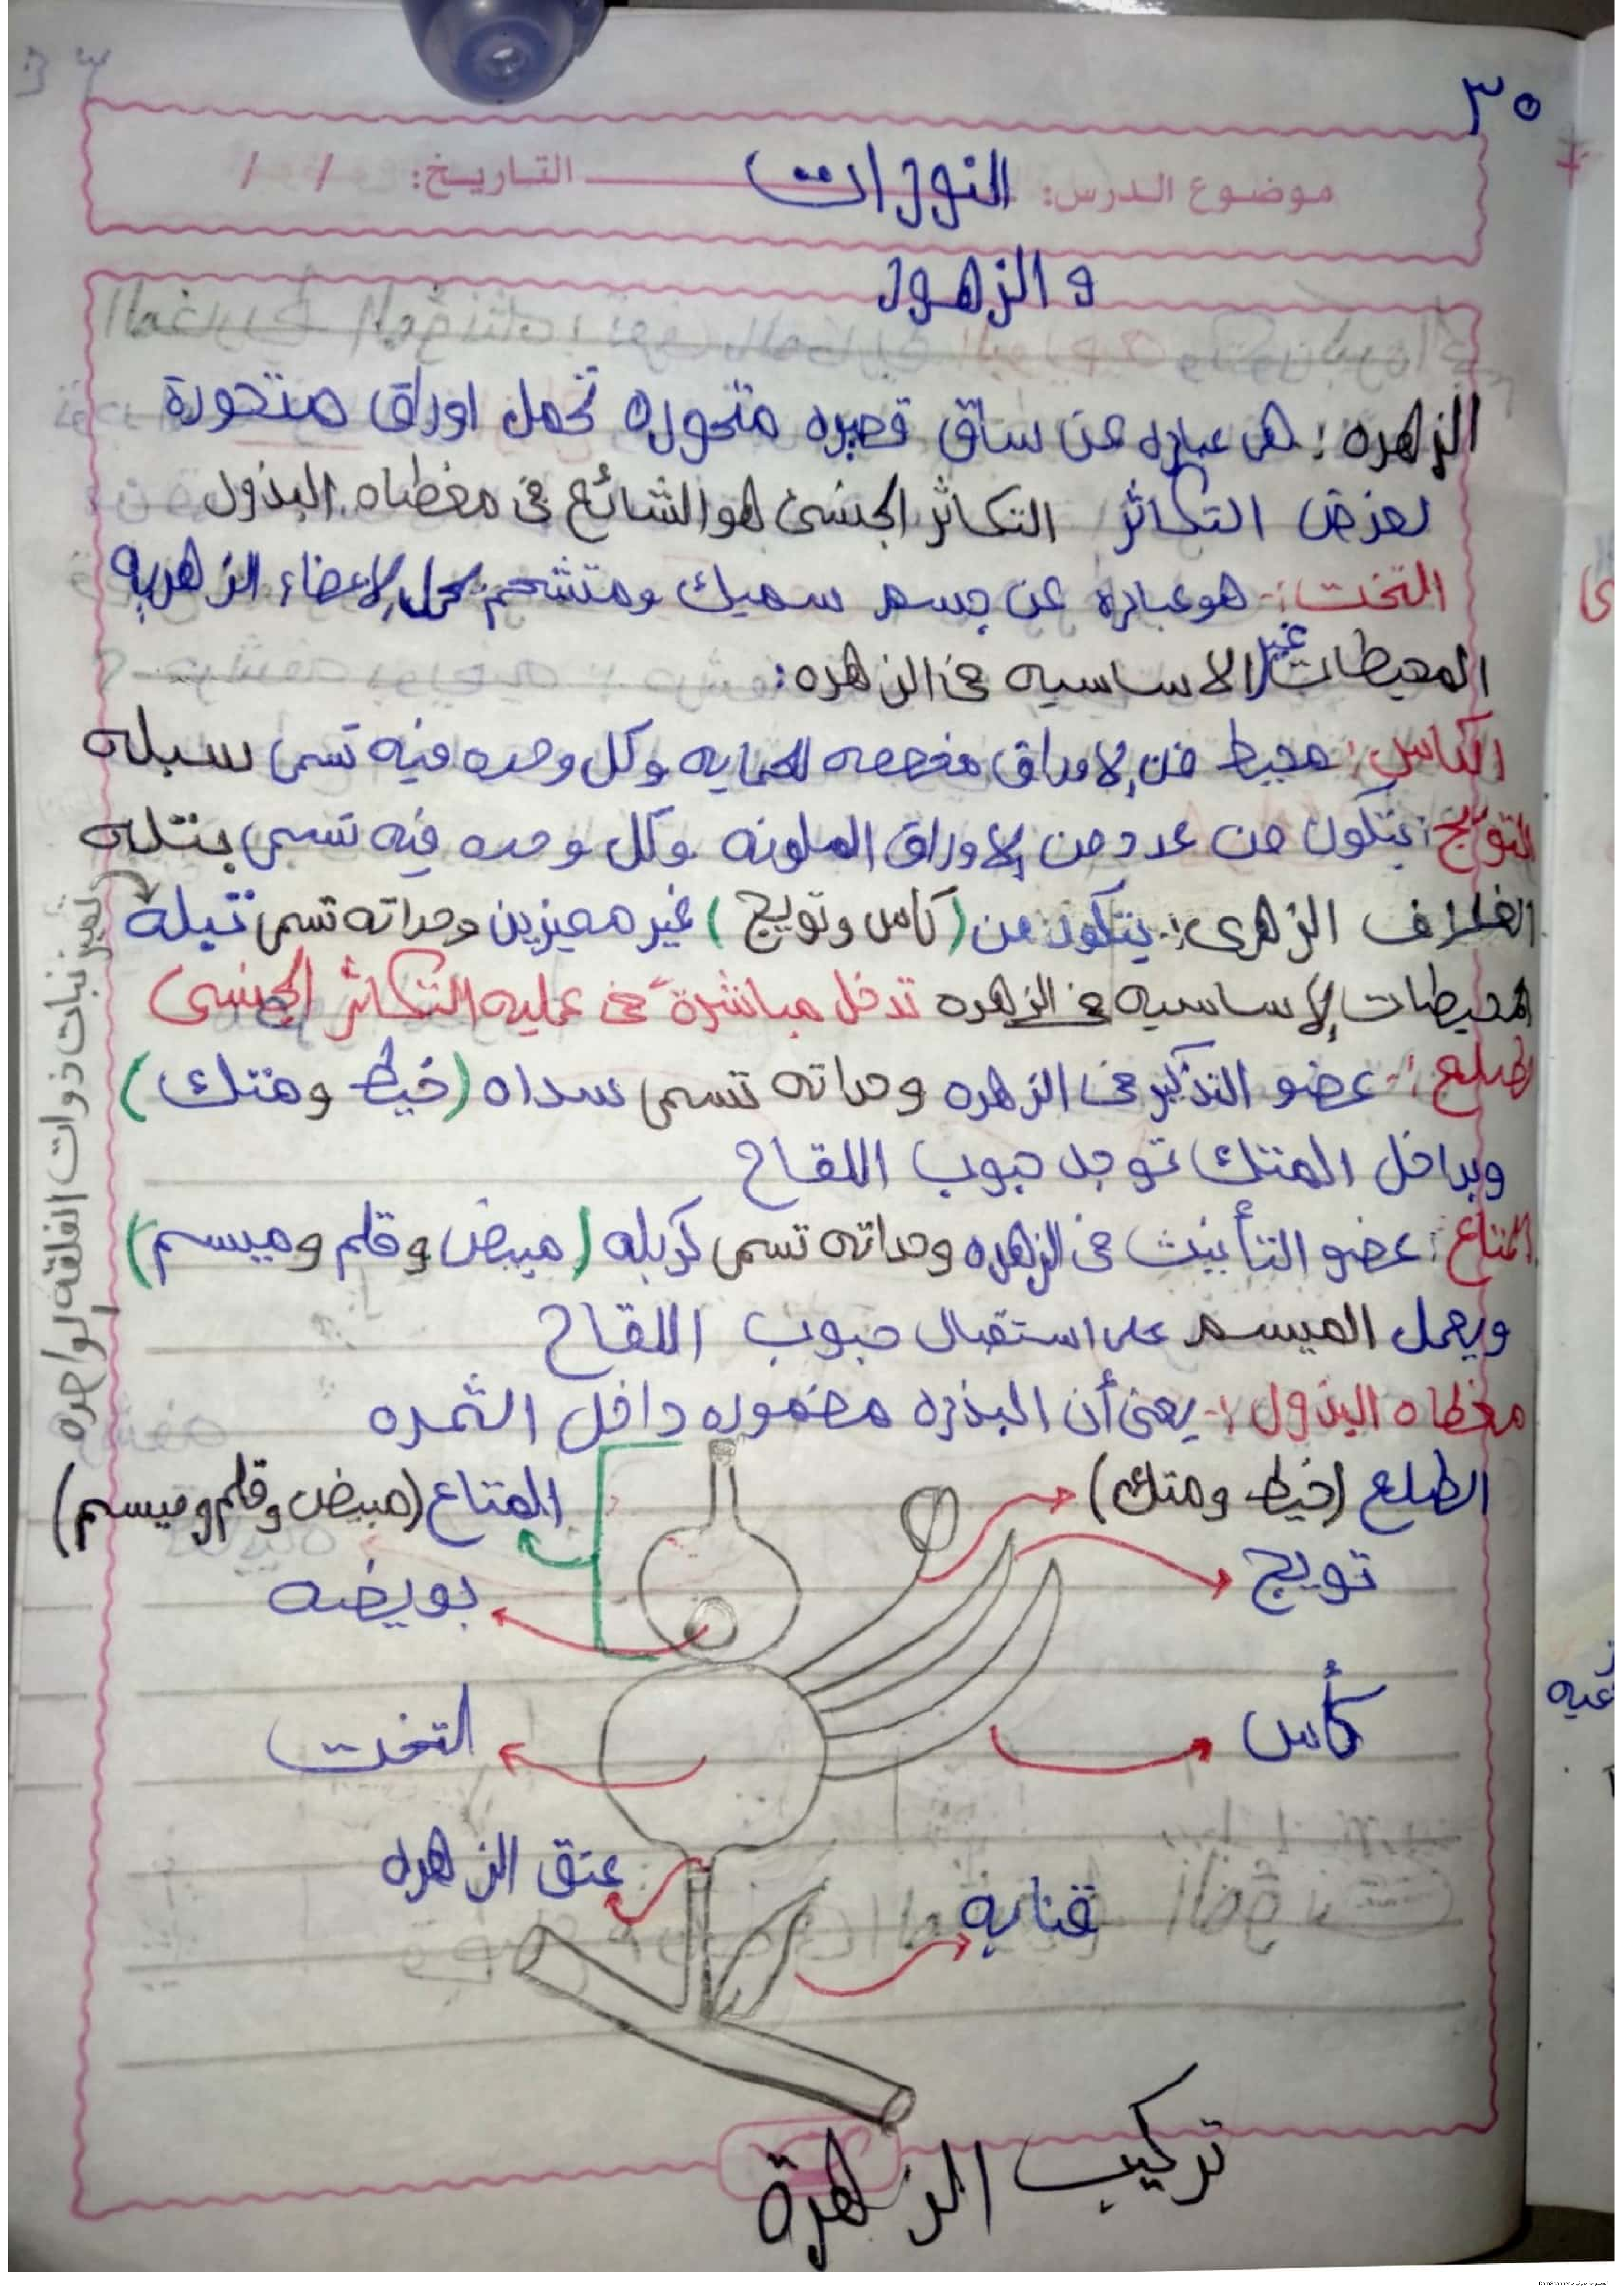 ٣٥
موضوع الدرس: النورات التاريخ: / /
و الزهور
الزهره : هى عباره عن ساق قصيره متحوره تحمل اوراق متحورة
لغرض التكاثر التكاثر الجنسى هو الشائع فى مغطاه البذور
التخت :- هو عباره عن جسم سميك ومتشحم يحمل الاعضاء الزهريه
المحيطات غير الاساسيه فى الزهره :
الكاس : محيط من الاوراق مخصصه للحمايه وكل وحده فيه تسمى سبله
التويج : يتكون من عدد من الاوراق الملونه وكل وحده فيه تسمى بتله
الغلاف الزهرى :- يتكون من (كاس وتويج) غير مميزين وحداته تسمى تبلة
تميز نباتات ذوات الفلقه الواحده
المحيطات الاساسيه فى الزهره تدخل مباشرة فى عمليه التكاثر الجنسى
الطلع :- عضو التذكير فى الزهره وحداته تسمى سداه (خيط ومتك)
وبداخل المتك توجد حبوب اللقاح
المتاع : عضو التأنيث فى الزهره وحداته تسمى كربله (مبيض وقلم وميسم)
ويعمل الميسم على استقبال حبوب اللقاح
مغطاه البذور :- يعنى أن البذره مضموره داخل الثمره
الطلع (خيط ومتك)
المتاع (مبيض وقلم وميسم)
تويج
بويضه
كأس
التخت
عنق الزهره
قنابه
تركيب الزهرة
الممسوحة ضوئيا بـ CamScanner